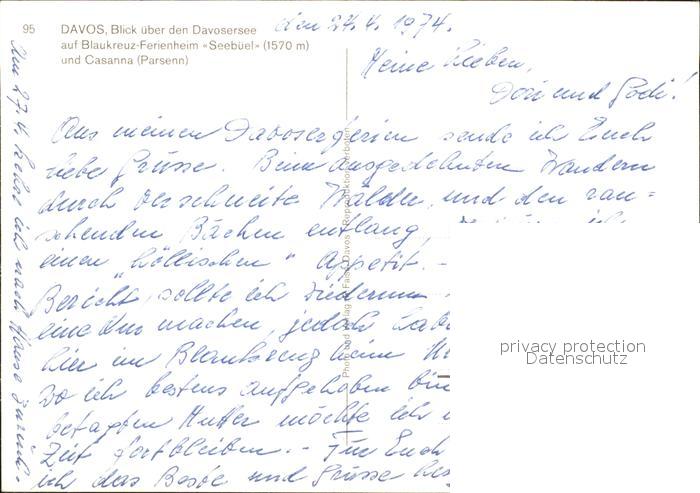 95 DAVOS, Blick über den Davosersee
auf Blaukreuz-Ferienheim «Seebüel» (1570 m)
und Casanna (Parsenn)
den 24.4.1974.
Meine Lieben,
Dori und Godi!
Aus meinen Davoserferien sende ich Euch
liebe Grüsse. Beim ausgedehnten Wandern
durch verschneite Wälder, und den rau=
schenden Bächen entlang,
einen "höllischen" Appetit. -
Bericht, sollte ich wiederum
eine machen, jedoch
hier im Blaukreuzheim
wo ich bestens aufgehoben bin
betagten Mutter möchte ich
Zeit fortbleiben. - Für Euch
ich das Beste und Grüsse
Am 27.4. kehre ich nach Hause zurück.
Photo und Verlag Davos / Reproduktion verboten
privacy protection
Datenschutz